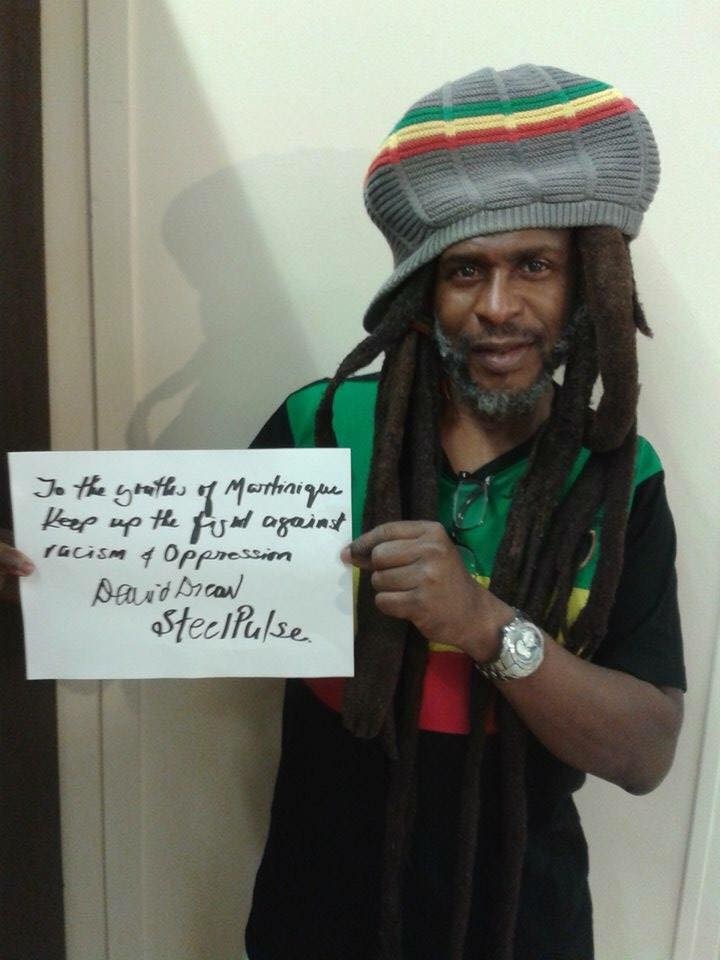 To the youths of Martinique
Keep up the fight against
racism & Oppression
David
Steel Pulse.